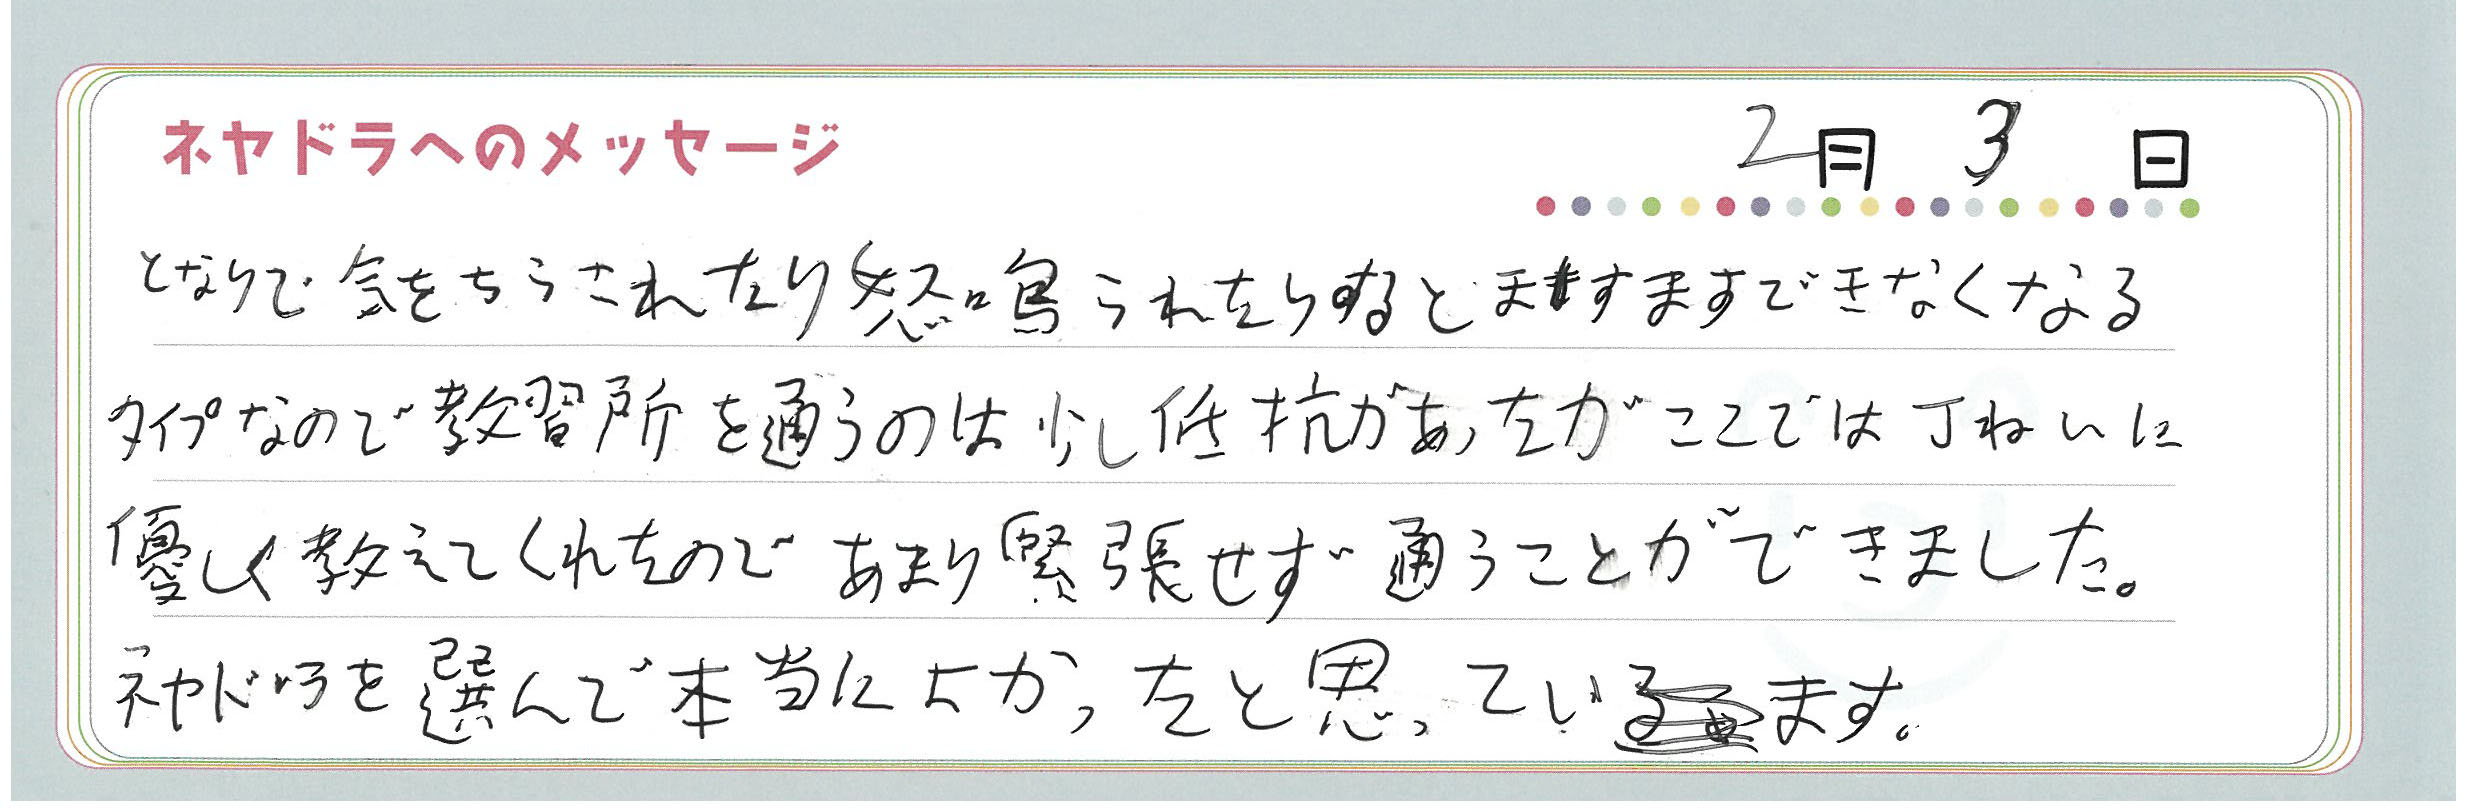 ネヤドラへのメッセージ
2月 3日
となりで気をちらされたり怒鳴られたりするとますますできなくなる
タイプなので教習所を通うのは少し低抗があったがここでは丁ねいに
優しく教えてくれたのであまり緊張せず通うことができました。
ネヤドラを選んで本当によかったと思っています。